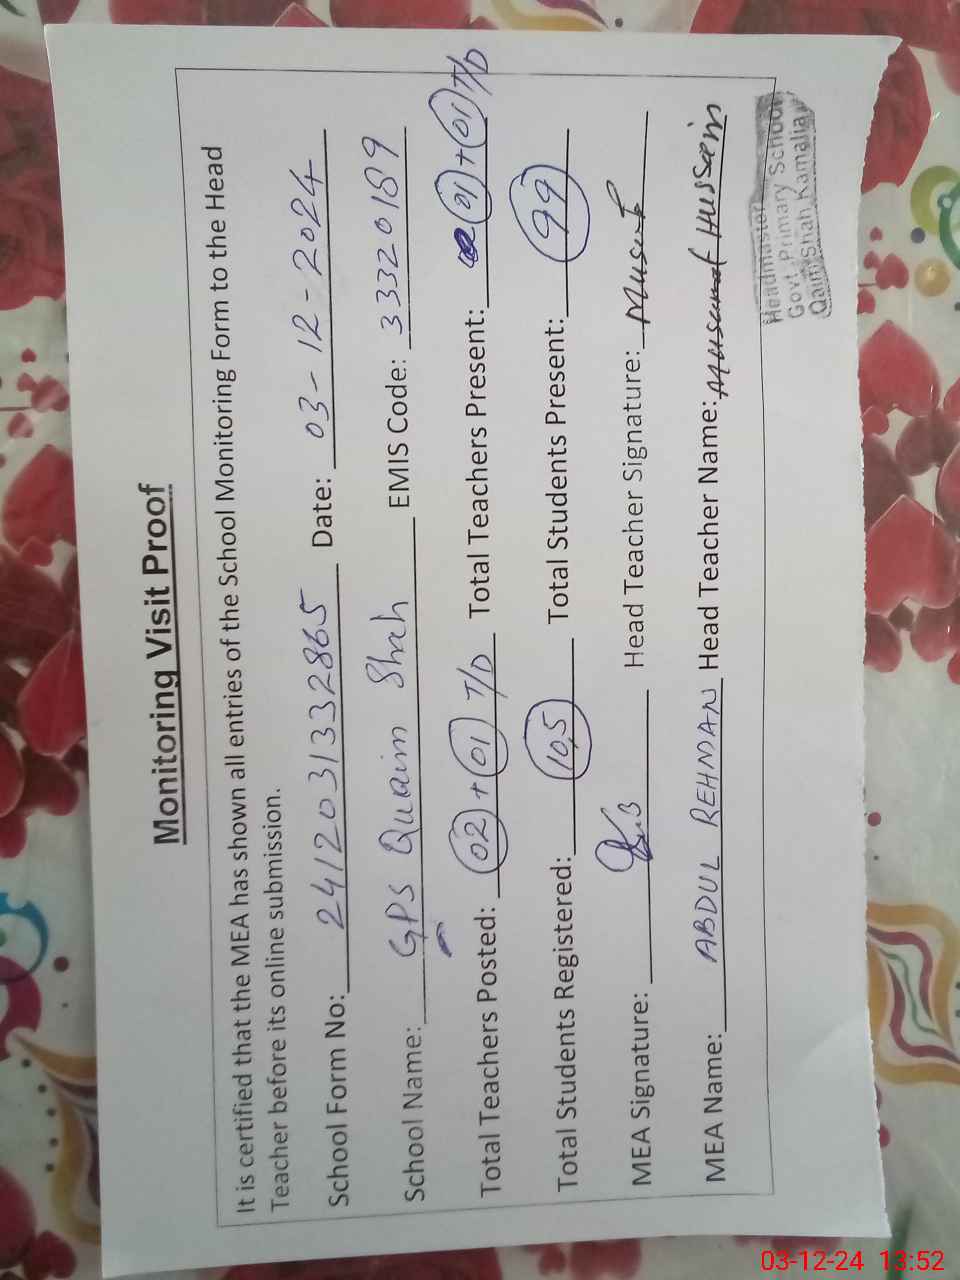 Monitoring Visit Proof
It is certified that the MEA has shown all entries of the School Monitoring Form to the Head
Teacher before its online submission.
School Form No: 2412031332865 Date: 03-12-2024
School Name: GPS Quaim Shah EMIS Code: 33320189
Total Teachers Posted: 02 + 01 T/D Total Teachers Present: 01 + 01 T/D
Total Students Registered: 105 Total Students Present: 99
MEA Signature: Head Teacher Signature:
MEA Name: ABDUL REHMAN Head Teacher Name: Hussain
Headmaster
Govt. Primary School
Qaim Shah Kamalia
03-12-24 13:52